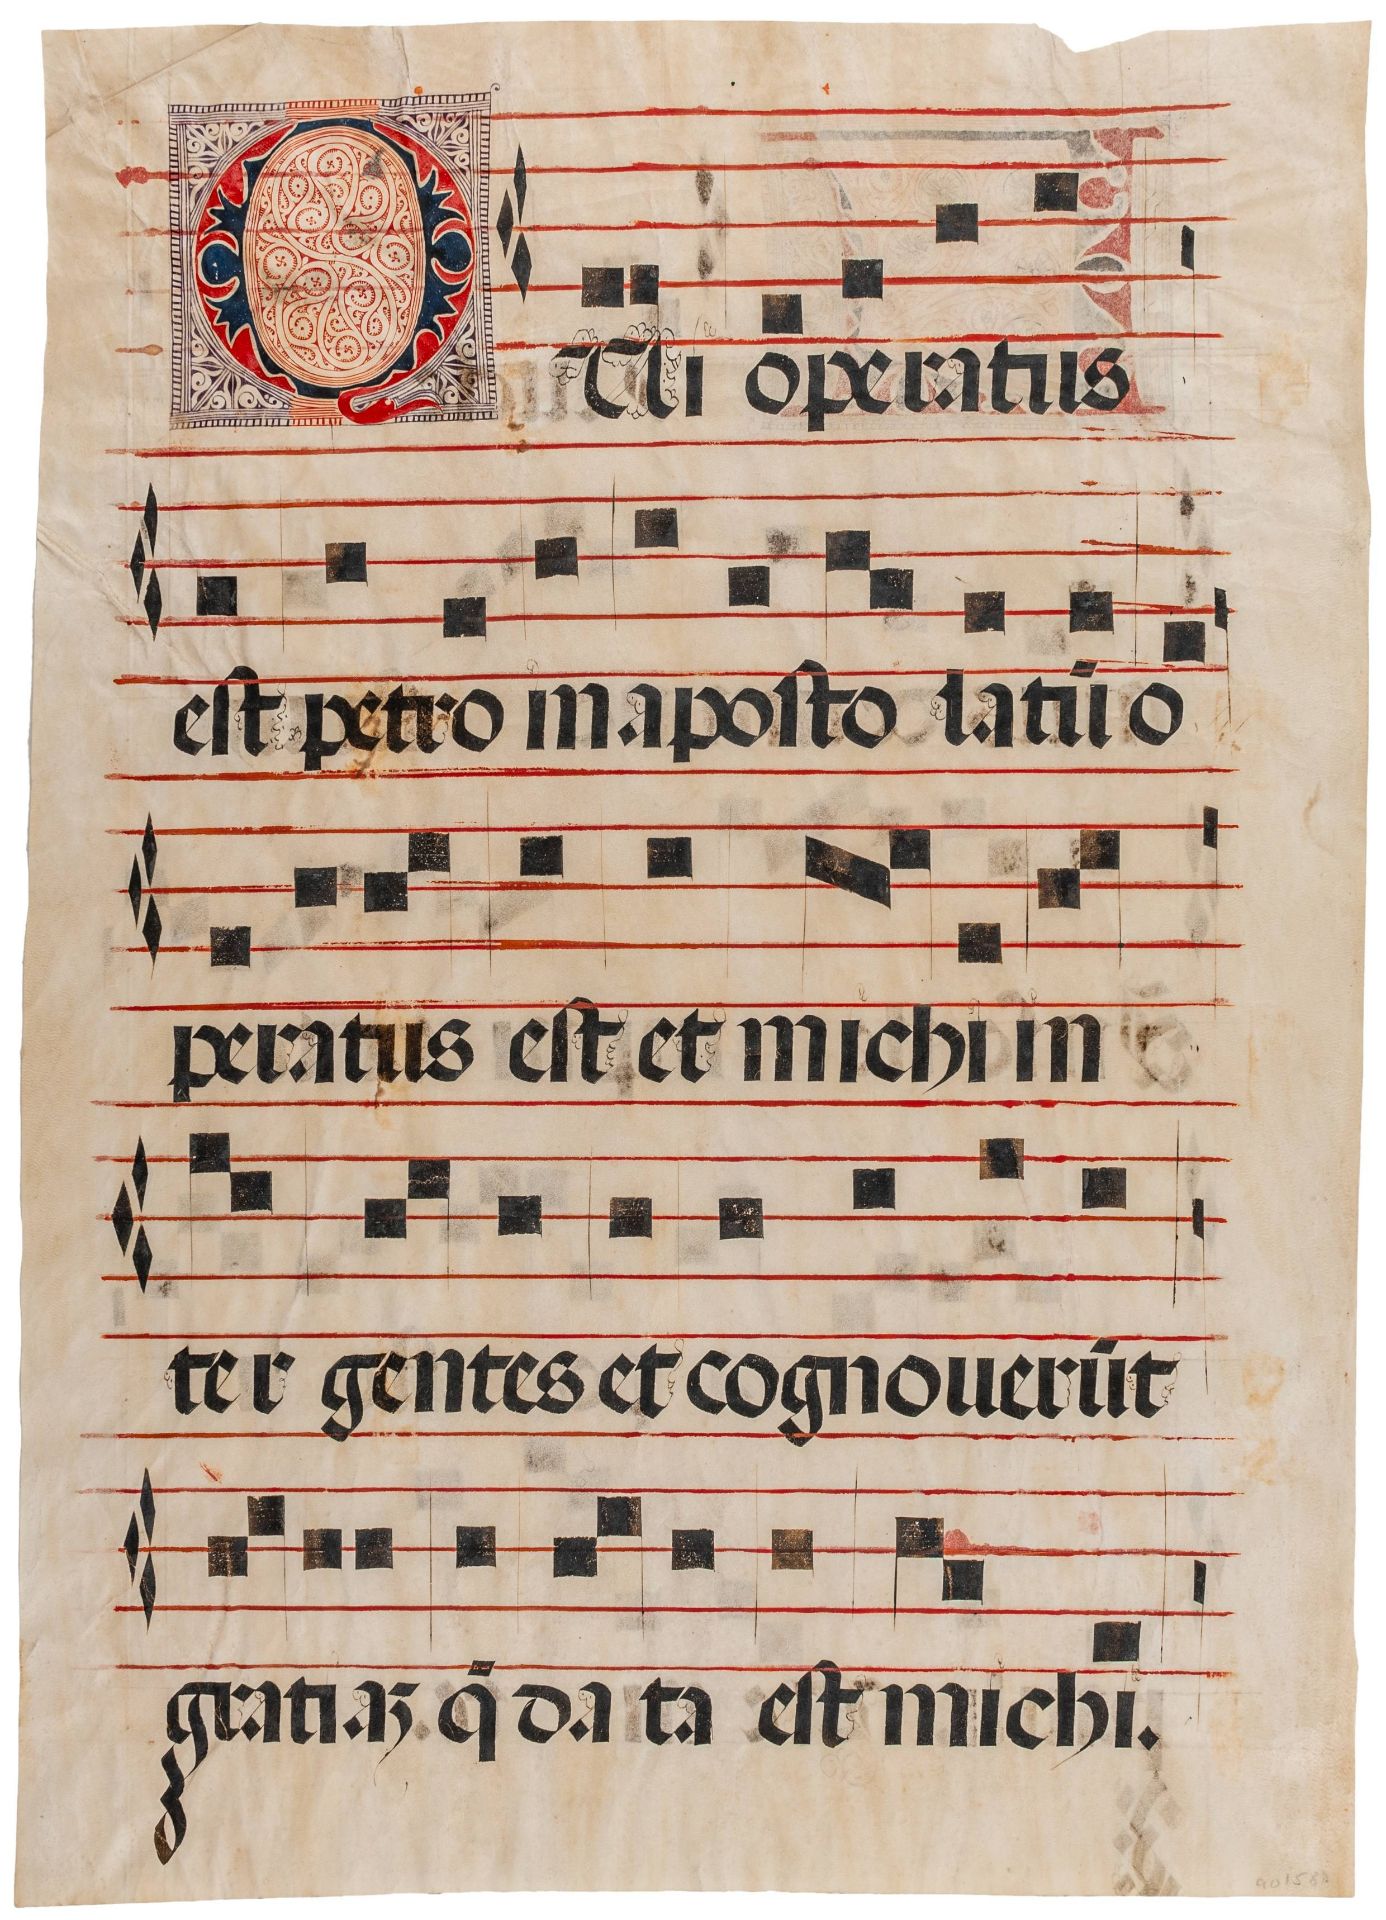 QUi operatus
est petro in aposto latū o
peratus est et michi in
ter gentes et cognouerūt
gratiaꝫ q̄ data est michi.